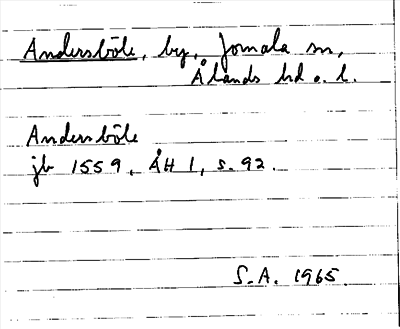 Andersböle, by, Jomala sn,
Ålands hd o. l.
Andersböle
jb 1559, ÅH 1, s. 92.
S.A. 1965